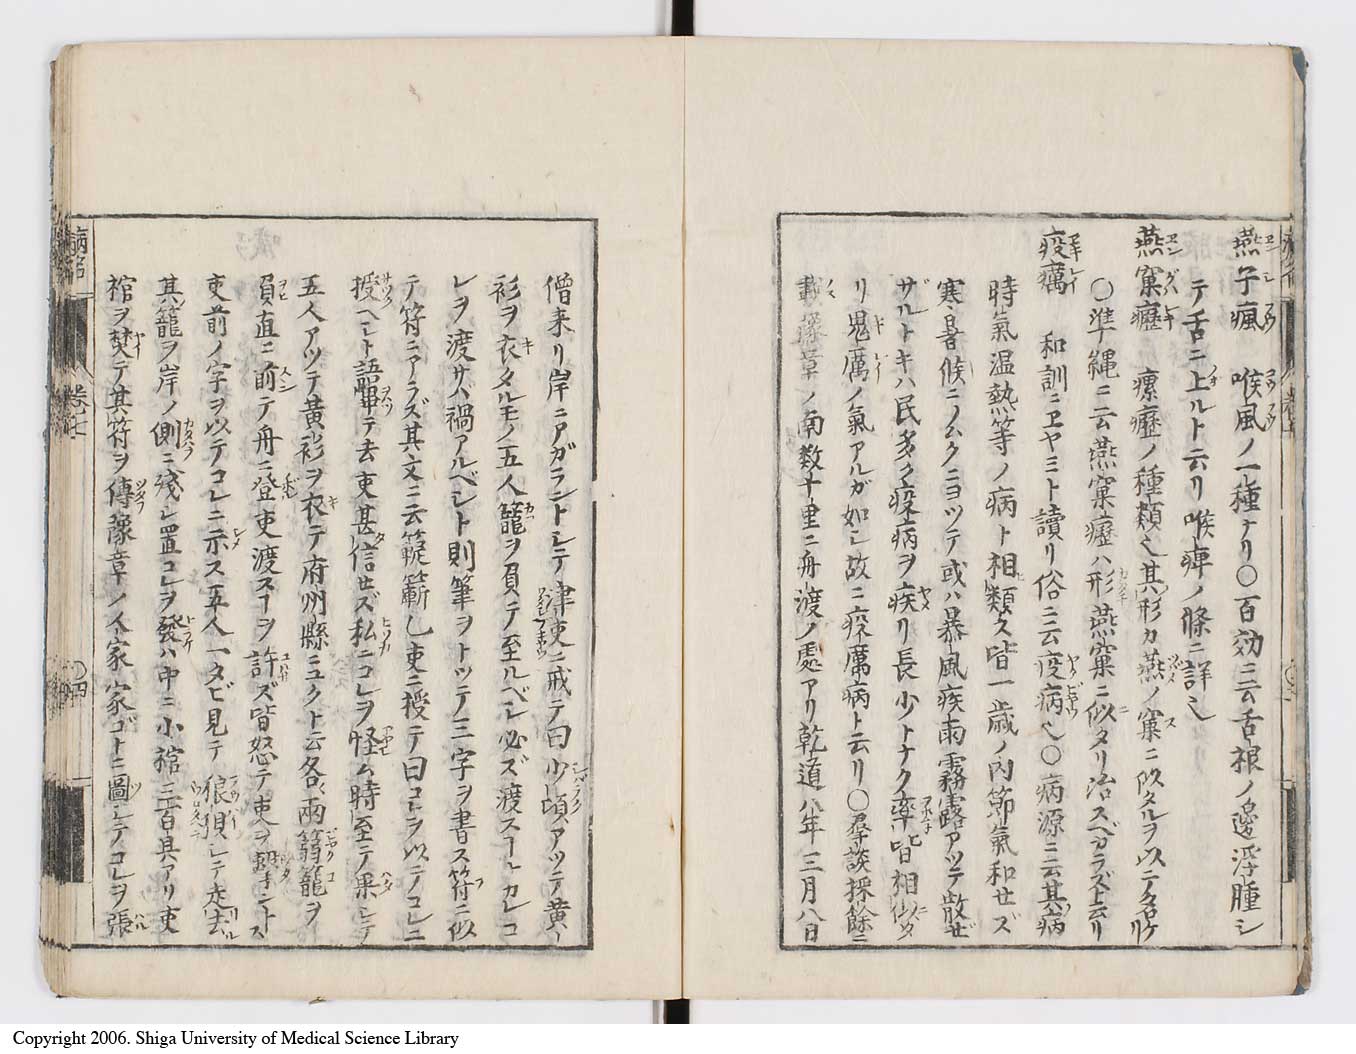 燕子瘋 喉風ノ一種ナリ〇百効ニ云舌根ノ邊浮腫シ
テ舌ニ上ルト云リ喉痺ノ條ニ詳也
燕窠癧 瘰癧ノ種類也其形カ燕ノ窠ニ似タルヲ以テ名ケリ
〇準縄ニ云燕窠癧ハ形燕窠ニ似タリ治スベカラズト云リ
疫癘 和訓ニヱヤミト讀リ俗ニ云疫病也〇病源ニ云其病
時氣温熱等ノ病ト相類ス皆一歳ノ內節氣和セズ
寒暑候ニソムクニヨツテ或ハ暴風疾雨霧露アツテ散ゼ
ザルトキハ民多ク疫病ヲ疾リ長少トナク率皆相似タ
リ鬼厲ノ氣アルガ如シ故ニ疫厲病ト云リ〇羣談採餘ニ
載豫章ノ南数十里ニ舟渡ノ處アリ乾道八年三月八日
僧来リ岸ニアガラントシテ津吏ニ戒テ曰少頃アツテ黄
衫ヲ衣タルモノ五人籠ヲ負テ至ルベシ必ズ渡スコトナカレコ
レヲ渡サハ禍アルベシト則筆ヲトツテ三字ヲ書ス符ニ似
テ符ニアラズ其文ニ云 乜吏ニ授テ曰コレヲ以テコレニ
授ヘシト語畢テ去吏甚信セズ私ニコレヲ怪ム時至テ果シテ
五人アツテ黄衫ヲ衣テ府州縣ニユクト云各兩蒻籠ヲ
負直ニ前テ舟ニ登吏渡スコヲ許ズ皆怒テ吏ヲ擊ントス
吏前ノ字ヲ以テコレニ示ス五人一タビ見テ狼狽シテ走去
其籠ヲ岸ノ側ニ殘シ置コレヲ發ハ中ニ小棺三百具アリ吏
棺ヲ焚テ其符ヲ傳豫章ノ人家家ゴトニ圖シテコレヲ張
卷七
〇四
Copyright 2006. Shiga University of Medical Science Library